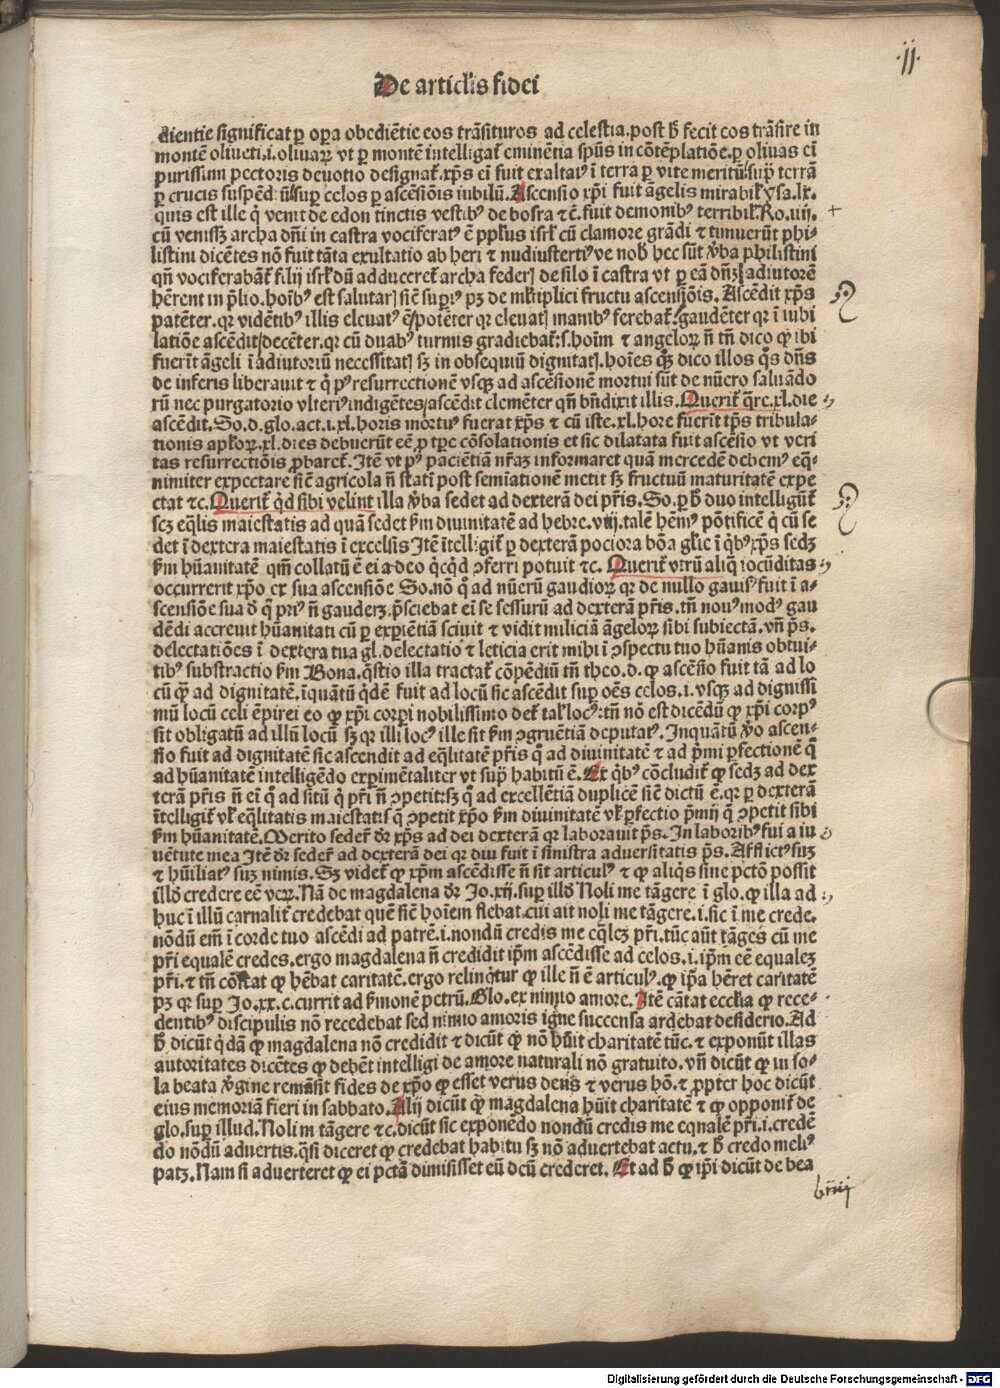 .ij.
De articlis fidei
dientie significat p̱ oṗa obediētie eos trāsituros ad celestia.post h̄ fecit eos trāsire in
montē oliueti.i.oliuaꝝ vt p̱ montē intelligat̄ eminētia spūs in cōtēplatiōe.p̱ oliuas eī
purissimi pectoris deuotio designat̄.xp̄s eī fuit exaltatꝰ ī terra p̱ vite meritū/suꝑ terrā
p̱ crucis suspēd' suꝑ celos p̱ ascēsiōis iubilū. Ascensio xp̄i fuit āgelis mirabil' ysa.lx.
quis est ille q̄ venit de edon tinctis vestibꝰ de bosra ⁊c̄.fuit demonibꝰ terribil'.Ro.iiij. +
cū venissꝫ archa dn̄i in castra vociferatꝰ ē ppl'us isrl' cū clamore grādi ⁊ timuerūt phi-
listini dicētes nō fuit tāta exultatio ab heri ⁊ nudiustertiꝰ ve nob̄ hec sūt v̄ba philistini
qn̄ vociferabāt̄ filij isrl' dū adduceret̄ archa federꝭ de silo ī castra vt p̱ eā dn̄ꝫ adiutorē
hērent in p̄lio.hoībꝰ est salutarꝭ siē suꝑiꝰ pꝫ de ml'tiplici fructu ascensiōis. Ascēdit xp̄s
patēter.qr vidētibꝰ illis eleuatꝰ ē/poiēter qr eleuatꝭ manibꝰ ferebat̄/gaudēter qr ī iubi
latiōe ascēdit/decēter.qr cū duabꝰ turmis gradiebat̄:s.hoīm ⁊ angeloꝝ n̄ tn̄ dico ꝙ ibi
fuerīt āgeli ī adiutoriū necessitatꝭ sꝫ in obsequiū dignitatꝭ.hoīes qꝫ dico illos q̄s dn̄s
de inferis liberauit ⁊ q̄ pꝰ resurrectionē vsqꝫ ad ascēsionē mortui sūt de nūero saluādo
rū nec purgatorio vlteriꝰ indigētes/ascēdit clemēter qn̄ bn̄dixit illis. Querit̄ q̄re.xl.die
ascēdit.So.d.glo.act.i.xl.horis mortuꝰ fuerat xp̄s ⁊ cū iste.xl.hore fuerīt tp̄s tribula-
tionis apl'oꝝ.xl.dies debuerūt eē p̱ tp̄e cōsolationis et sic dilatata fuit ascēsio vt veri
tas resurrectiōis ꝓbaret̄.Itē vt pꝰ paciētiā nr̄aꝫ informaret quā mercedē debemꝰ eq̄-
nimiter expectare siē agricola n̄ statī post semiationē metit sꝫ fructuū maturitatē expe
ctat ⁊c.Querit̄ q̄d sibi velint illa v̄ba sedet ad dexterā dei pr̄is.So.p̱ h̄ duo intelligūt̄
scꝫ eq̄lis maiestatis ad quā sedet s̄m diuinitatē ad hebre.viij.talē hēmꝰ pōtificē q̄ cū se
det ī dextera maiestatis ī excelsis Itē ītelligit̄ p̱ dexterā pociora bōa gl'ie ī q̄bꝰ xp̄s sedꝫ
s̄m hūanitatē qm̄ collatū ē ei a deo q̄cq̄d ꝯferri potuit ⁊c. Querit̄ vtrū aliq̄ iocūditas
occurrerit xp̄o ex sua ascēsiōe So.nō q̄ ad nūerū gaudioꝝ qr de nullo gauisꝰ fuit ī a-
scēsiōe sua d̄ q̄ priꝰ n̄ gauderꝫ.p̄sciebat ei se sessurū ad dexterā pr̄is.tn̄ nouꝰ modꝰ gau
dēdi accreuit hūanitati cū p̱ exp̱iētiā sciuit ⁊ vidit miliciā āgeloꝝ sibi subiectā.vn̄ ps̄.
delectatiōes ī dextera tua gl̄.delectatio ⁊ leticia erit mihi ī ꝯspectu tuo hūanis obtui-
tibꝰ substractio s̄m Bona.q̄stio illa tractat̄ cōpēdiū tn̄ theo.d.ꝙ ascēsio fuit tā ad lo
cū ꝙ̄ ad dignitatē.īquātū q̄dē fuit ad locū sic ascēdit suꝑ oēs celos.i.vsqꝫ ad dignissi
mū locū celi ēpirei eo ꝙ xp̄i corp̱i nobilissimo det̄ tal' locꝰ:tn̄ nō est dicēdū ꝙ xp̄i corpꝰ
sit obligatū ad illū locū sꝫ qr illi locꝰ ille sit s̄m ꝯgruētiā deputatꝰ.Inquātū v̄o ascen-
sio fuit ad dignitatē sic ascendit ad eq̄litatē pr̄is q̄ ad diuinitatē ⁊ ad p̄mi ꝑfectionē q̄
ad hūanitatē intelligēdo exp̱imētaliter vt suꝑ habitū ē.Ex q̄bꝰ cōcludit̄ ꝙ sedꝫ ad dex
terā pr̄is n̄ ei q̄ ad sitū q̄ pr̄i n̄ ꝯpetit:sꝫ q̄ ad excellētiā duplicē siē dictū ē.qr p̱ dexterā
ītelligit̄ vl' eq̄litatis maiestatꝭ q̄ ꝯpetit xp̄o s̄m diuinitatē vl' ꝑfectio p̄mij q̄ ꝯpetit sibi
s̄m hūanitatē.Merito sedet̄ dr̄ xp̄s ad dei dexterā qr laborauit ps̄.In laboribꝰ fui a iu
uētute mea Itē dr̄ sedet̄ ad dexterā dei qr diu fuit ī sinistra aduersitatis ps̄.Afflictꝰ suꝫ
⁊ hūiliatꝰ suꝫ nimis.Sꝫ videt̄ ꝙ xp̄m ascēdisse n̄ sit articulꝰ ⁊ ꝙ aliq̄s sine pctō possit
illd̄ credere eē veꝝ.Nā de magdalena dr̄ Jo.xij.suꝑ illd̄ Noli me tāgere ī glo.ꝙ illa ad
huc ī illū carnalit̄ credebat quē siē hoīem flebat.cui ait noli me tāgere.i.sic ī me crede.
nōdū em̄ ī corde tuo ascēdi ad patrē.i.nondū credis me eq̄leꝫ pr̄i.tūc aūt tāges cū me
pr̄i equalē credes.ergo magdalena n̄ credidit ip̄m ascēdisse ad celos.i.ip̄m eē equaleꝫ
pr̄i.⁊ tn̄ cōstat ꝙ hēbat caritatē.ergo relinq̄tur ꝙ ille n̄ ē articulꝰ.ꝙ ip̄a hēret caritatē
pꝫ qr suꝑ Jo.xx.c.currit ad s̄monē petrū.Glo.ex nimio amore.Itē cātat eccl'ia ꝙ rece-
dentibꝰ discipulis nō recedebat sed nimio amoris igne succensa ardebat desiderio.Ad
h̄ dicūt q̄dā ꝙ magdalena nō credidit ⁊ dicūt ꝙ nō hūit charitatē tūc.⁊ exponūt illas
autoritates dicētes ꝙ debēt intelligi de amore naturali nō gratuito.vn̄ dicūt ꝙ in so-
la beata v̄gine remāsit fides de xp̄o ꝙ esset verus deus ⁊ verus hō.⁊ ꝓpter hoc dicūt
eius memoriā fieri in sabbato.Alij dicūt ꝙ magdalena hūit charitatē ⁊ ꝙ opponit̄ de
glo.suꝑ illud.Noli m tāgere ⁊c.dicūt sic exponēdo nondū credis me equalē pr̄i.i.credē
do nōdū aduertis.q̄si diceret ꝙ credebat habitu sꝫ nō aduertebat actu.⁊ h̄ credo meliꝰ
patꝫ.Nam si aduerteret ꝙ ei pctā dimisisset eū deū crederet. Et ad h̄ ꝙ ip̄i dicūt de bea
b iiij
Digitalisierung gefördert durch die Deutsche Forschungsgemeinschaft - DFG